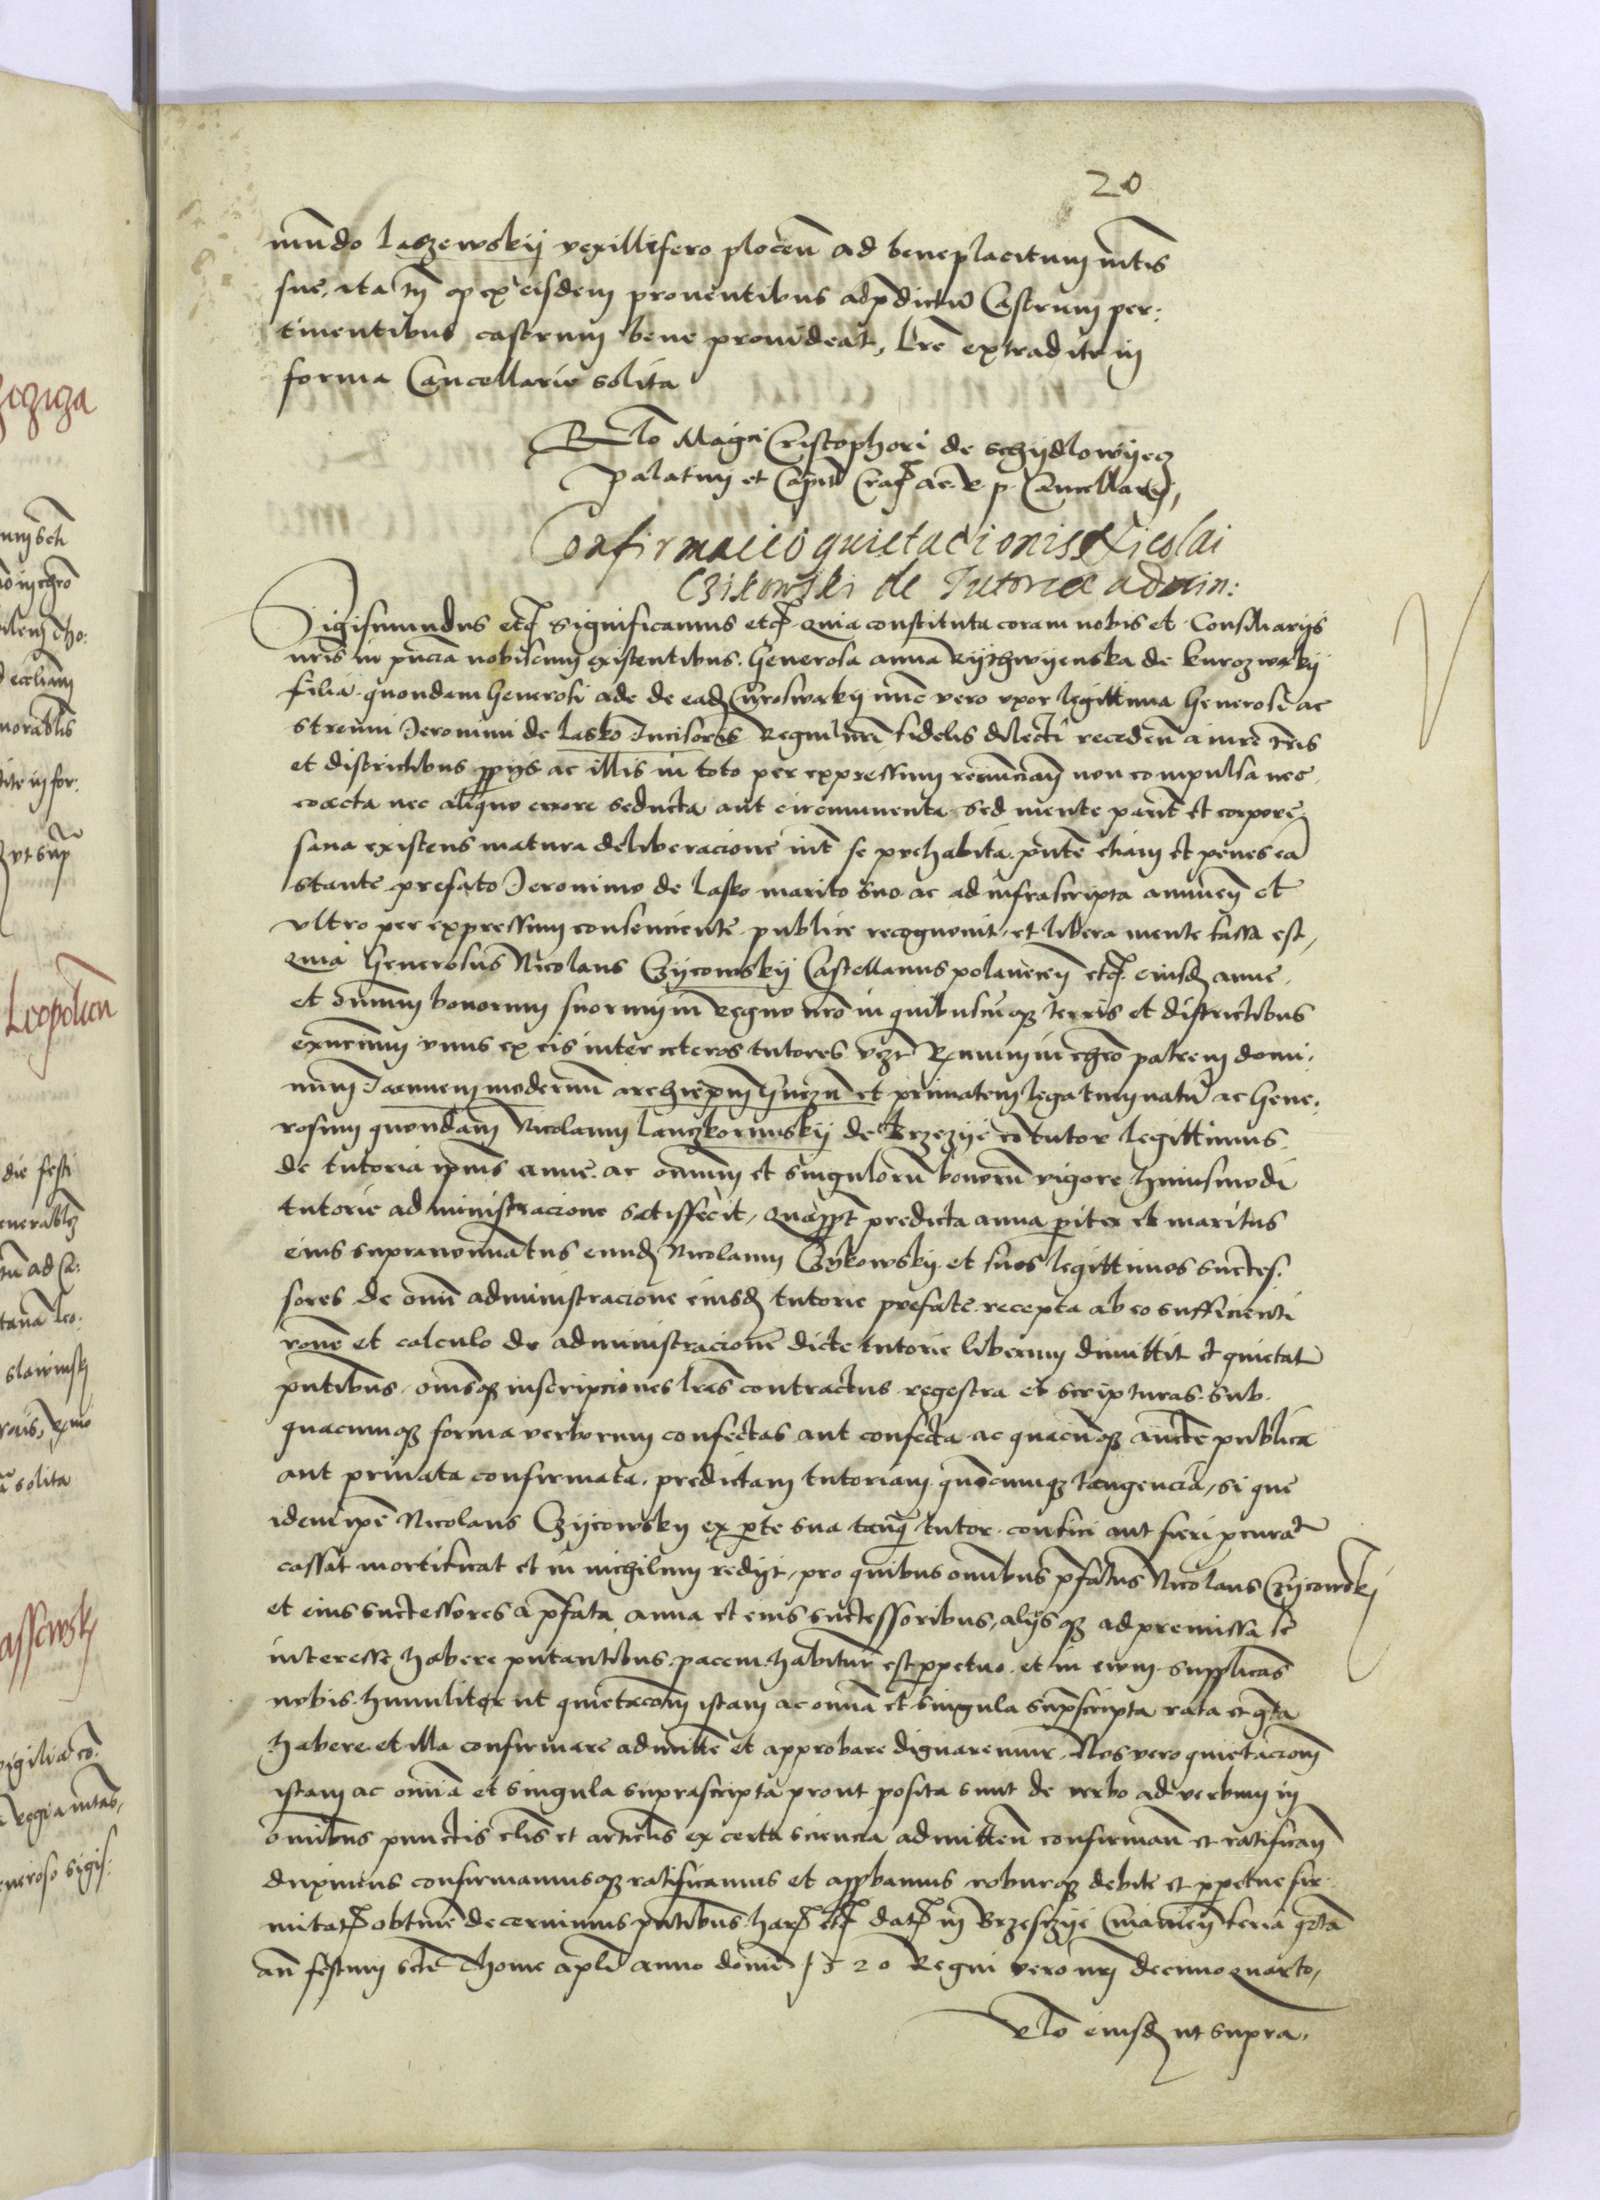 20
mundo Laszewskij vexillifero plocen ad beneplacitum mtis
sue, ita tn q ex eisdem proventibus ad pdictu Castrum per:
tinentibus castrum bene provideat, lre extradite in
forma Cancellarie solita
Rlo Magci Cristophori de schydlowyecz
palatini et Capit Crac ac R p Cancellarij,
Confirmacio quietacionis Nicolai
Czikowski de Tutoriæ admin:
Sigismundus etc significamus etc quia constituta coram nobis et Consiliarijs
nris in pncia nobiscum existentibus. Generosa anna Rythwyenska de kurozwakij
filia quondam Generosi ade de ead Curoswakij nunc vero vxor legittima Generosi ac
strenui Jeronimi de Lasko Incisoris Regni nri fidelis dilecti receden a iure tris
et districtibus pprijs ac illis in toto per expressum renuncian non compulsa nec
coacta nec aliquo errore seducta aut circumventa sed mente parit et corpore
sana existens matura deliberacione int se prehabita, pnte etiam et penes ea
stante prefato Jeronimo de Lasko marito suo ac ad infrascripta annuen et
vltro per expressum consenciente publice recognovit, et libera mente fassa est,
quia Generosus Nicolaus Czycowskij Castellanus polanecen etc. eiusd anne
et omnium bonorum suorum in regno nro in quibuscuq terris et districtibus
existencium vnus ex eis inter ceteros tutores vz Rmum in chro patrem domi:
num Joannem modernum archiepum Gnezn et primatem legatum natu ac Gene:
rosum quondam Nicolaum Lanczkorunskij de Brzezye co tutor legittimus
de tutoria ipius anne ac omnium et singulorum bonoru vigore huiusmodi
tutorie administracione satisfecit, quappt predicta anna pariter et maritus
eius supranominatus eund Nicolaum Czykowskij et suos legittimos succes:
sores de omni administracione eiusd tutorie prefate recepta ab eo sufficienti
rone et calculo de administracione dicte tutorie liberum dimittit et quietat
pntibus, omesq inscripciones lras contractus regestra et scripturas sub
quacumq forma verborum confectas aut confecta ac quacuq aucte publica
aut privata confirmata, predictam tutoriam quomcumq tangencia, si que
idem ipe Nicolaus Czycowsky ex pte sua tanq tutor confici aut fieri pcurat
cassat mortificat et in nichilum redigit, pro quibus omibus pfatus Nicolaus Czycowskj
et eius successores a pfata anna et eius successoribus, alijsq ad premissa se
interesse habere putantibus, pacem habitur est ppetuo et in evum supplicas
nobis humiliter ut quietacom istam ac omia et singula supscripta rata et gta
habere et illa confirmare admitte et approbare dignaremur. Nos vero quietaciom
istam ac omia et singula suprascripta prout posita sunt de verbo ad verbum in
omibus punctis clis et articlis ex certa sciencia admitten confirman et ratifican
duximus confirmamusq ratificamus et appbamus roburq debite et ppetue fir
mitat obtinere decernimus pntibus har etc dat in Brzesczye Cuiavien feria qrta
an festum scti Thome apli anno domi 1520 Regni vero nri decimoquarto,
Rlo eiusd ut supra.